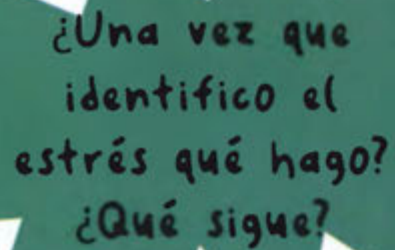 ¿Una vez que
identifico el
estrés qué hago?
¿Qué sigue?